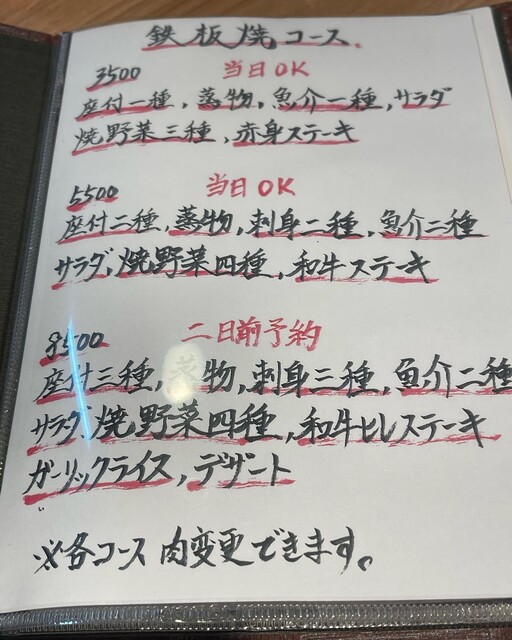 鉄板焼コース
3500 当日OK
座付一種,蒸物,魚介一種,サラダ
焼野菜三種,赤身ステーキ
5500 当日OK
座付二種,蒸物,刺身二種,魚介二種
サラダ,焼野菜四種,和牛ステーキ
8500 二日前予約
座付三種,蒸物,刺身三種,魚介二種
サラダ,焼野菜四種,和牛ヒレステーキ
ガーリックライス,デザート
※各コース肉変更できます。